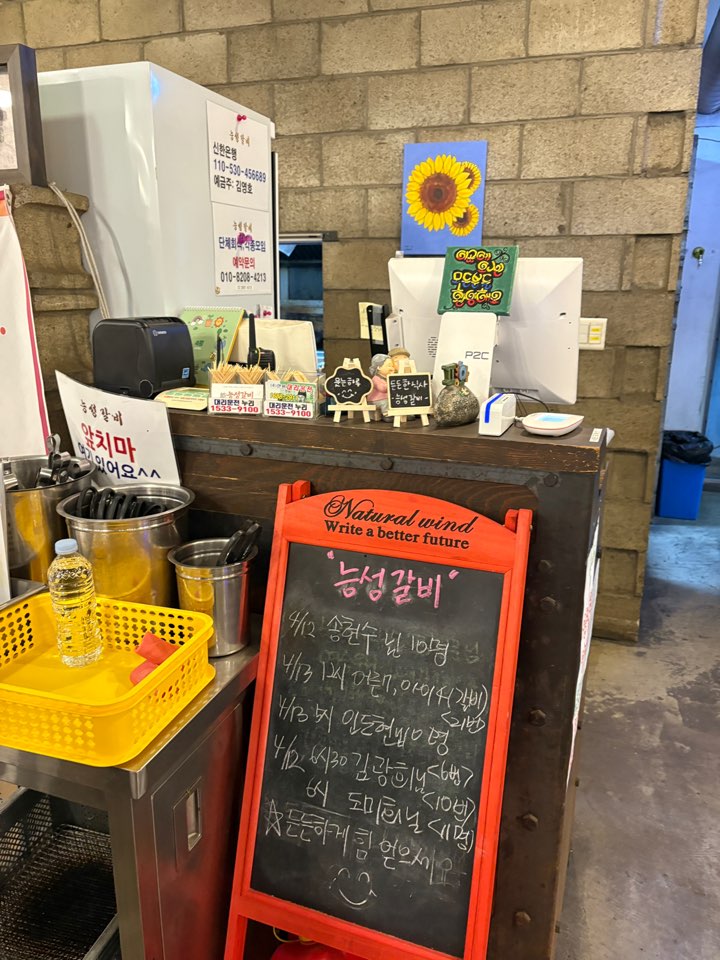 능성갈비
신한은행
110-530-456689
예금주: 김영호
능성갈비
단체회식/각종모임
예약문의
010-8208-4213
P2C
웃는하루
든든한식사
능성갈비
능성갈비
대리운전 누리
1533-9100
대리운전 누리
1533-9100
능성갈비
앞치마
여기있어요^^
Natural wind
Write a better future
"능성갈비"
4/12 송현수님 10명
4/13 12시 어른7, 아이4 (갈비)
4/13 5시 인도현님 명
4/12 6시30 김광희님 <6명>
6시 도미희님 <10번>
<11명>
☆든든하게 힘 얻으세요